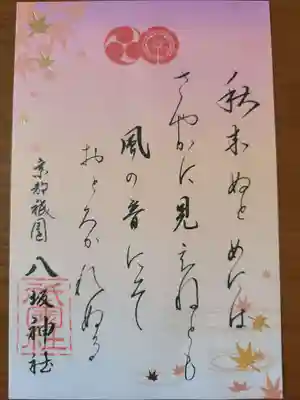 秋来ぬとめには
さやかに見えねども
風の音にぞ
おどろかれぬる
京都祇園
八坂神社
祇園社